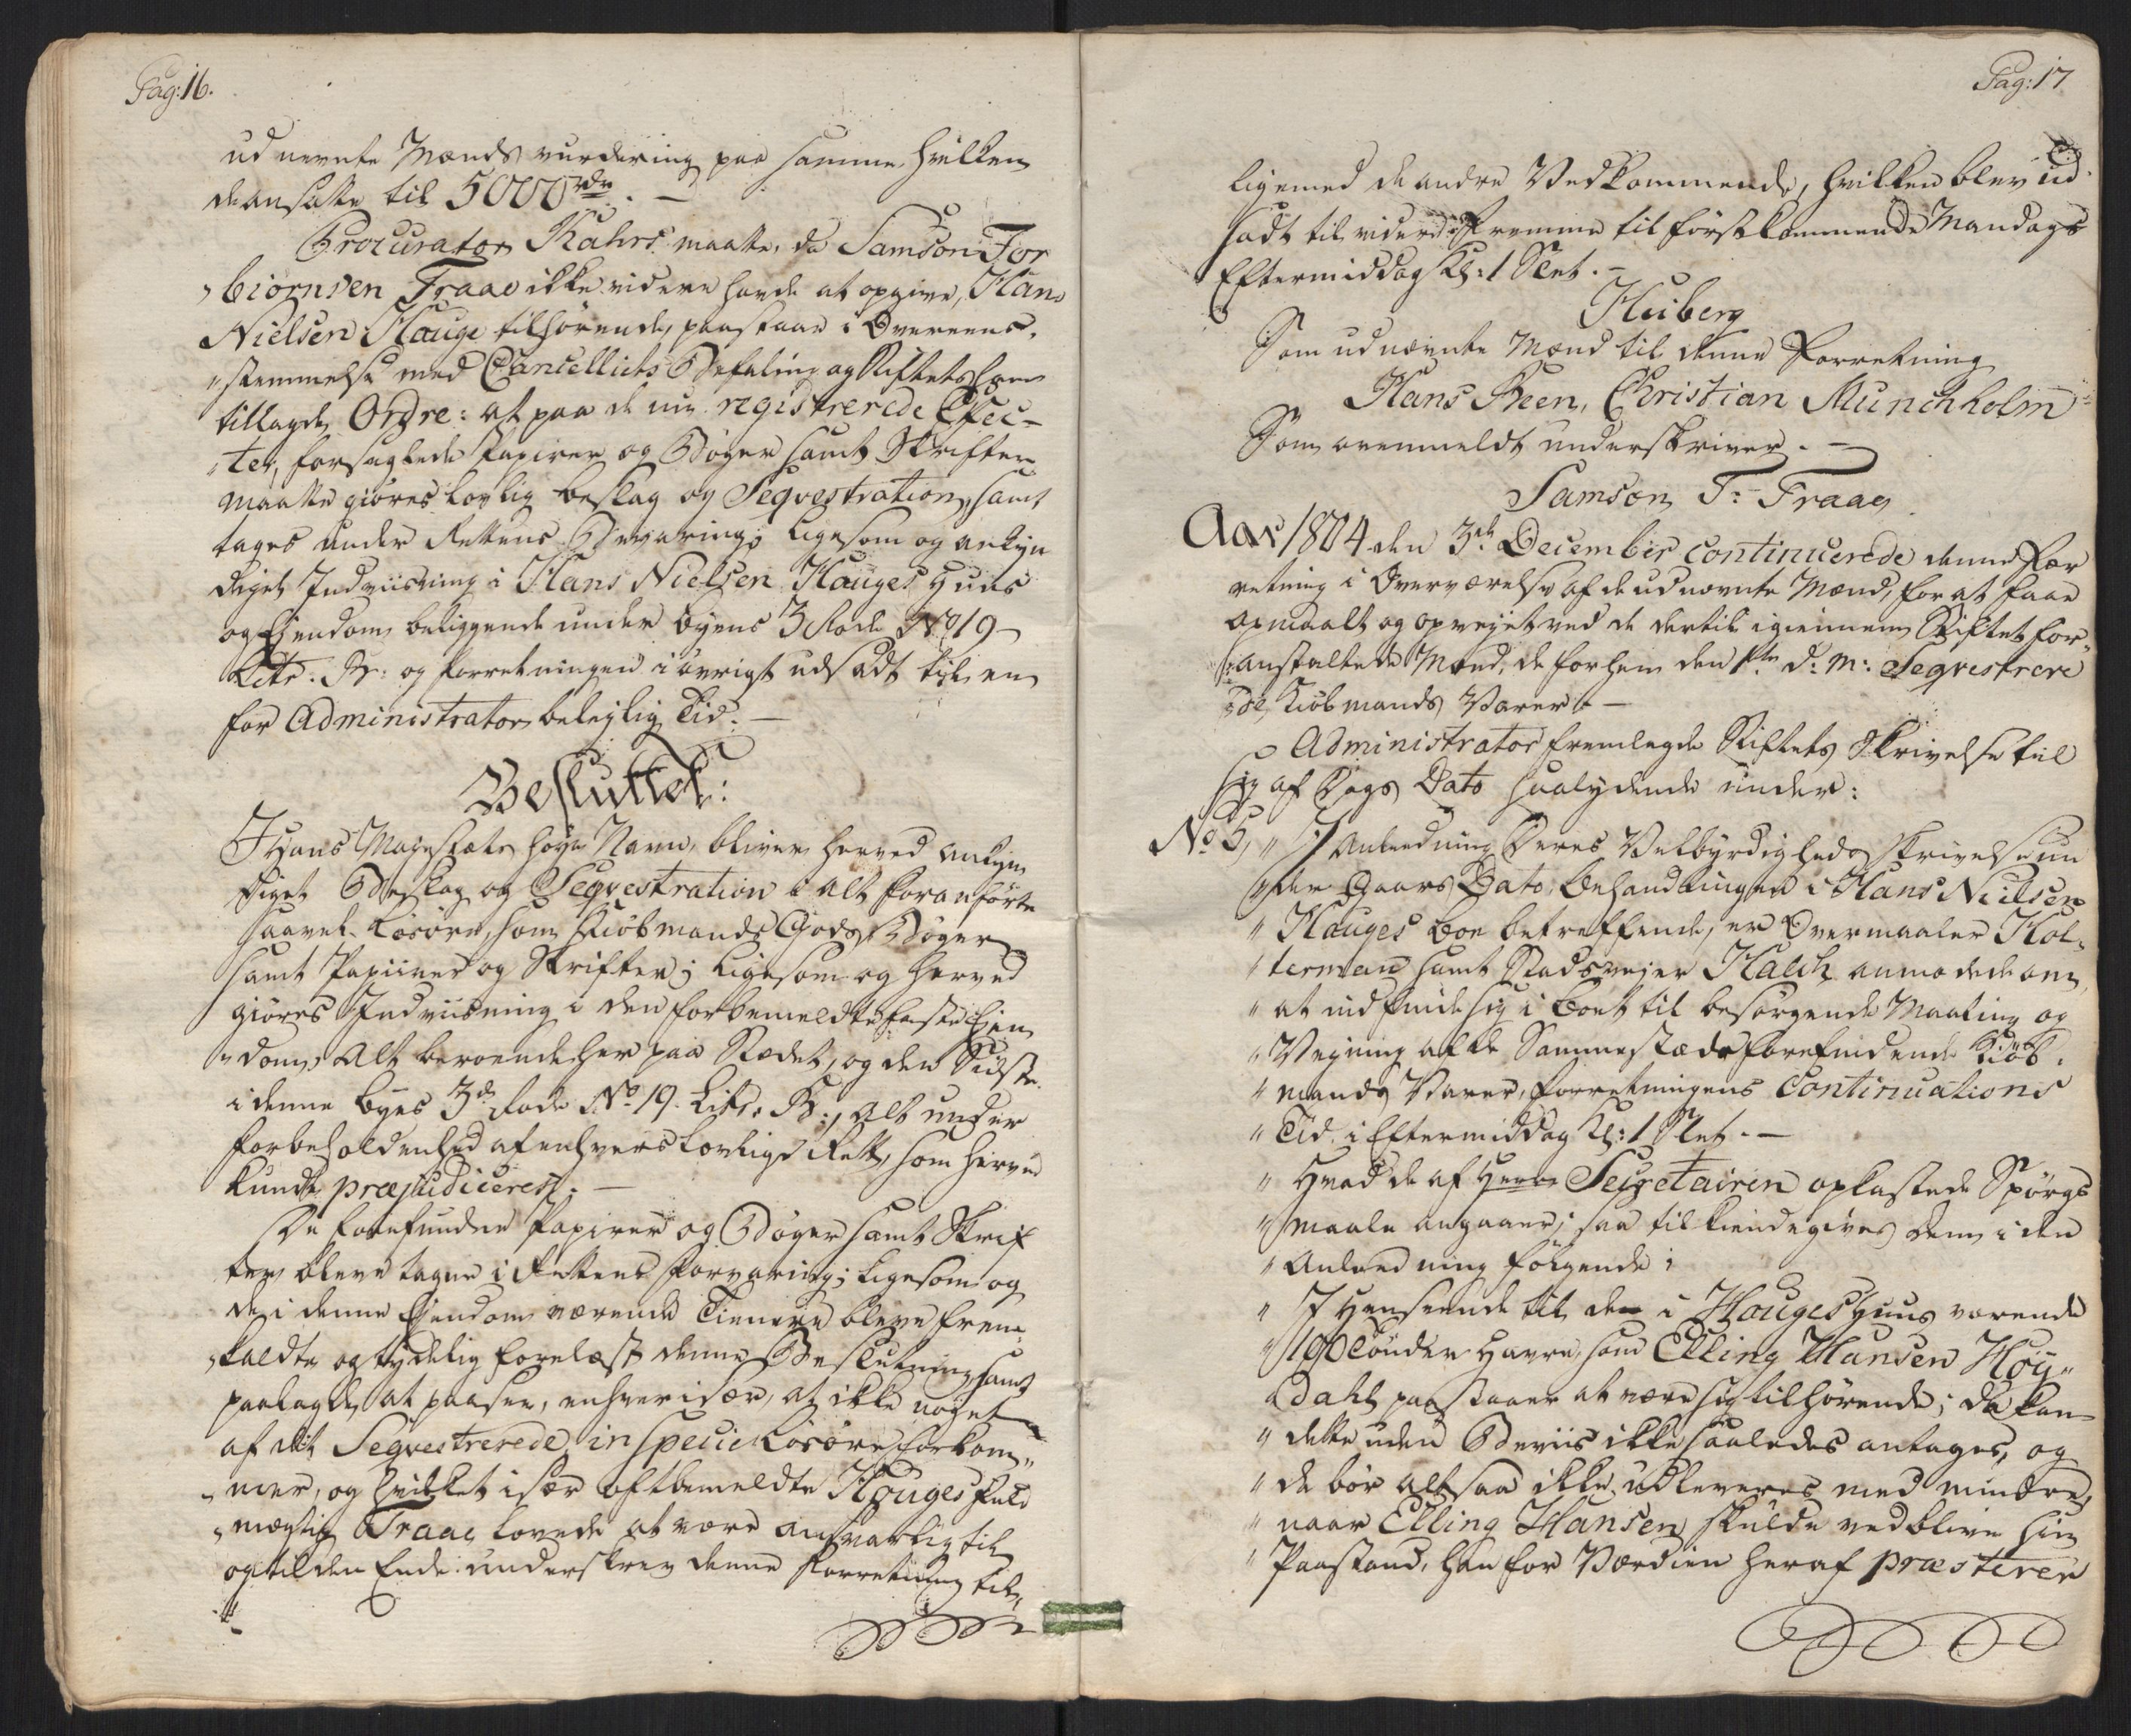 Pag: 16.
udnevnte Mænds vurdering paa samme, hvilken
de ansatte til 5000 rdr. —
Procurator Kahrs maatte, da Samson Tor
„biørnsen Traae ikke videre havde at opgive, Hans
Nielsen Hauge tilhørende, paastaae i Overeens-
„stemmelse med Cancelliets Befaling og Stiftets ham
tillagde Ordre: at paa de nu registrerede Effec-
„ter, forseglede Papirer og Bøger samt Skrifter
maatte giøres lovlig beslag og Seqvestration, samt
tages under Rettens Bevaring; ligesom og ankyn
diget Indviisning i Hans Nielsen Hauges Huus
og Eiendom, beliggende under byens 3 Rode No 19
Litr. B: og Forretningen i øvrigt udsadt til en
for Administrator belejlig Tid. —
Besluttet:
I Hans Majestæts høye Navn, bliver herved ankyn
diget Beslag og Seqvestration i alt foranførte
saavel Løsøre, som Kiøbmands Gods, Bøger
samt Papiirer og Skrifter; ligesom og herved
giøres Indviisning i den forbemeldte faste Ejen
„dom, Alt beroende her paa Stædet, og den Sidste
i denne byes 3de Rode No 19. Litr. B:, alt under
forbeholdenhed af enhvers lovlige Rett, som herved
kunde præjudiceres. —
De forefundne Papirer og Bøger samt Skrif
ter bleve tagne i Rettens Forvaring; ligesom og
de i denne Ejendom værende Tienere bleve frem
„kaldte og tydelig forelæst denne Beslutning, samt
paalagde, at paasee, enhver især, at ikke noget
af det Seqvestrerede, in specie Løsøre, forkom„
„mer, og hvilket især oftbemeldte Hauges Fuld
„mægtig Traae lovede at være ansvarlig til
og til den Ende underskrev denne Forretning til„
Pag: 17
ligemed de andre Vedkommende, hvilken blev ud-
sadt til videre Fremme til førstkommende Mandags
Eftermiddag Kl: 1 Slet. —
Heiberg
Som udnævnte Mænd til denne Forretning
Hans Been, Christian Munchholm
Som ovenmeldt underskriver. —
Samson T: Traae
Aar 1804 den 3de December continuerede denne For
retning i Overværelse af de udnævnte Mænd, for at faae
opmaalt og opvejet ved de dertil igiennem Stiftet for„
„anstaltede Mænd, de forhen den 1te d: m: Seqvestrere
„de Kiøbmands Varer. —
Administrator fremlagde Stiftets Skrivelse til
sig af Dags Dato saalydende under:
No 5, „ I Anledning Deres Velbyrdigheds Skrivelse un
„der Gaars Dato, Behandlingen i Hans Nielsen
„ Hauges Boe betreffende, er Overmaaler Hol-
„ terman samt Stadsvejer Kalch anmodede om,
„ at indfinde sig i Boet til besørgende Maaling og
„ Vejning af de Sammestæds forefindende Kiøb-
„ mands Varer, Forretningens Continuations
„ Tid i Eftermiddag Kl: 1 Slet. —
„ Hvad de af Herr Secretairen opkastede Spørgs
„ maale angaaer; saa tilkiendegives Dem i den
„ Anledning følgende:
„ I Henseende til de i Hauges Huus værende
„ 100 Tønder Havre, som Elling Hansen Høy„
„ dahl paastaaer at være sig tilhørende; da kan
„ dette uden Beviis ikke saaledes antages, og
„ de bør altsaa ikke udleveres med mindre,
„ naar Elling Hansen skulde vedblive sin
„ Paastand, han for Værdien heraf præsterer